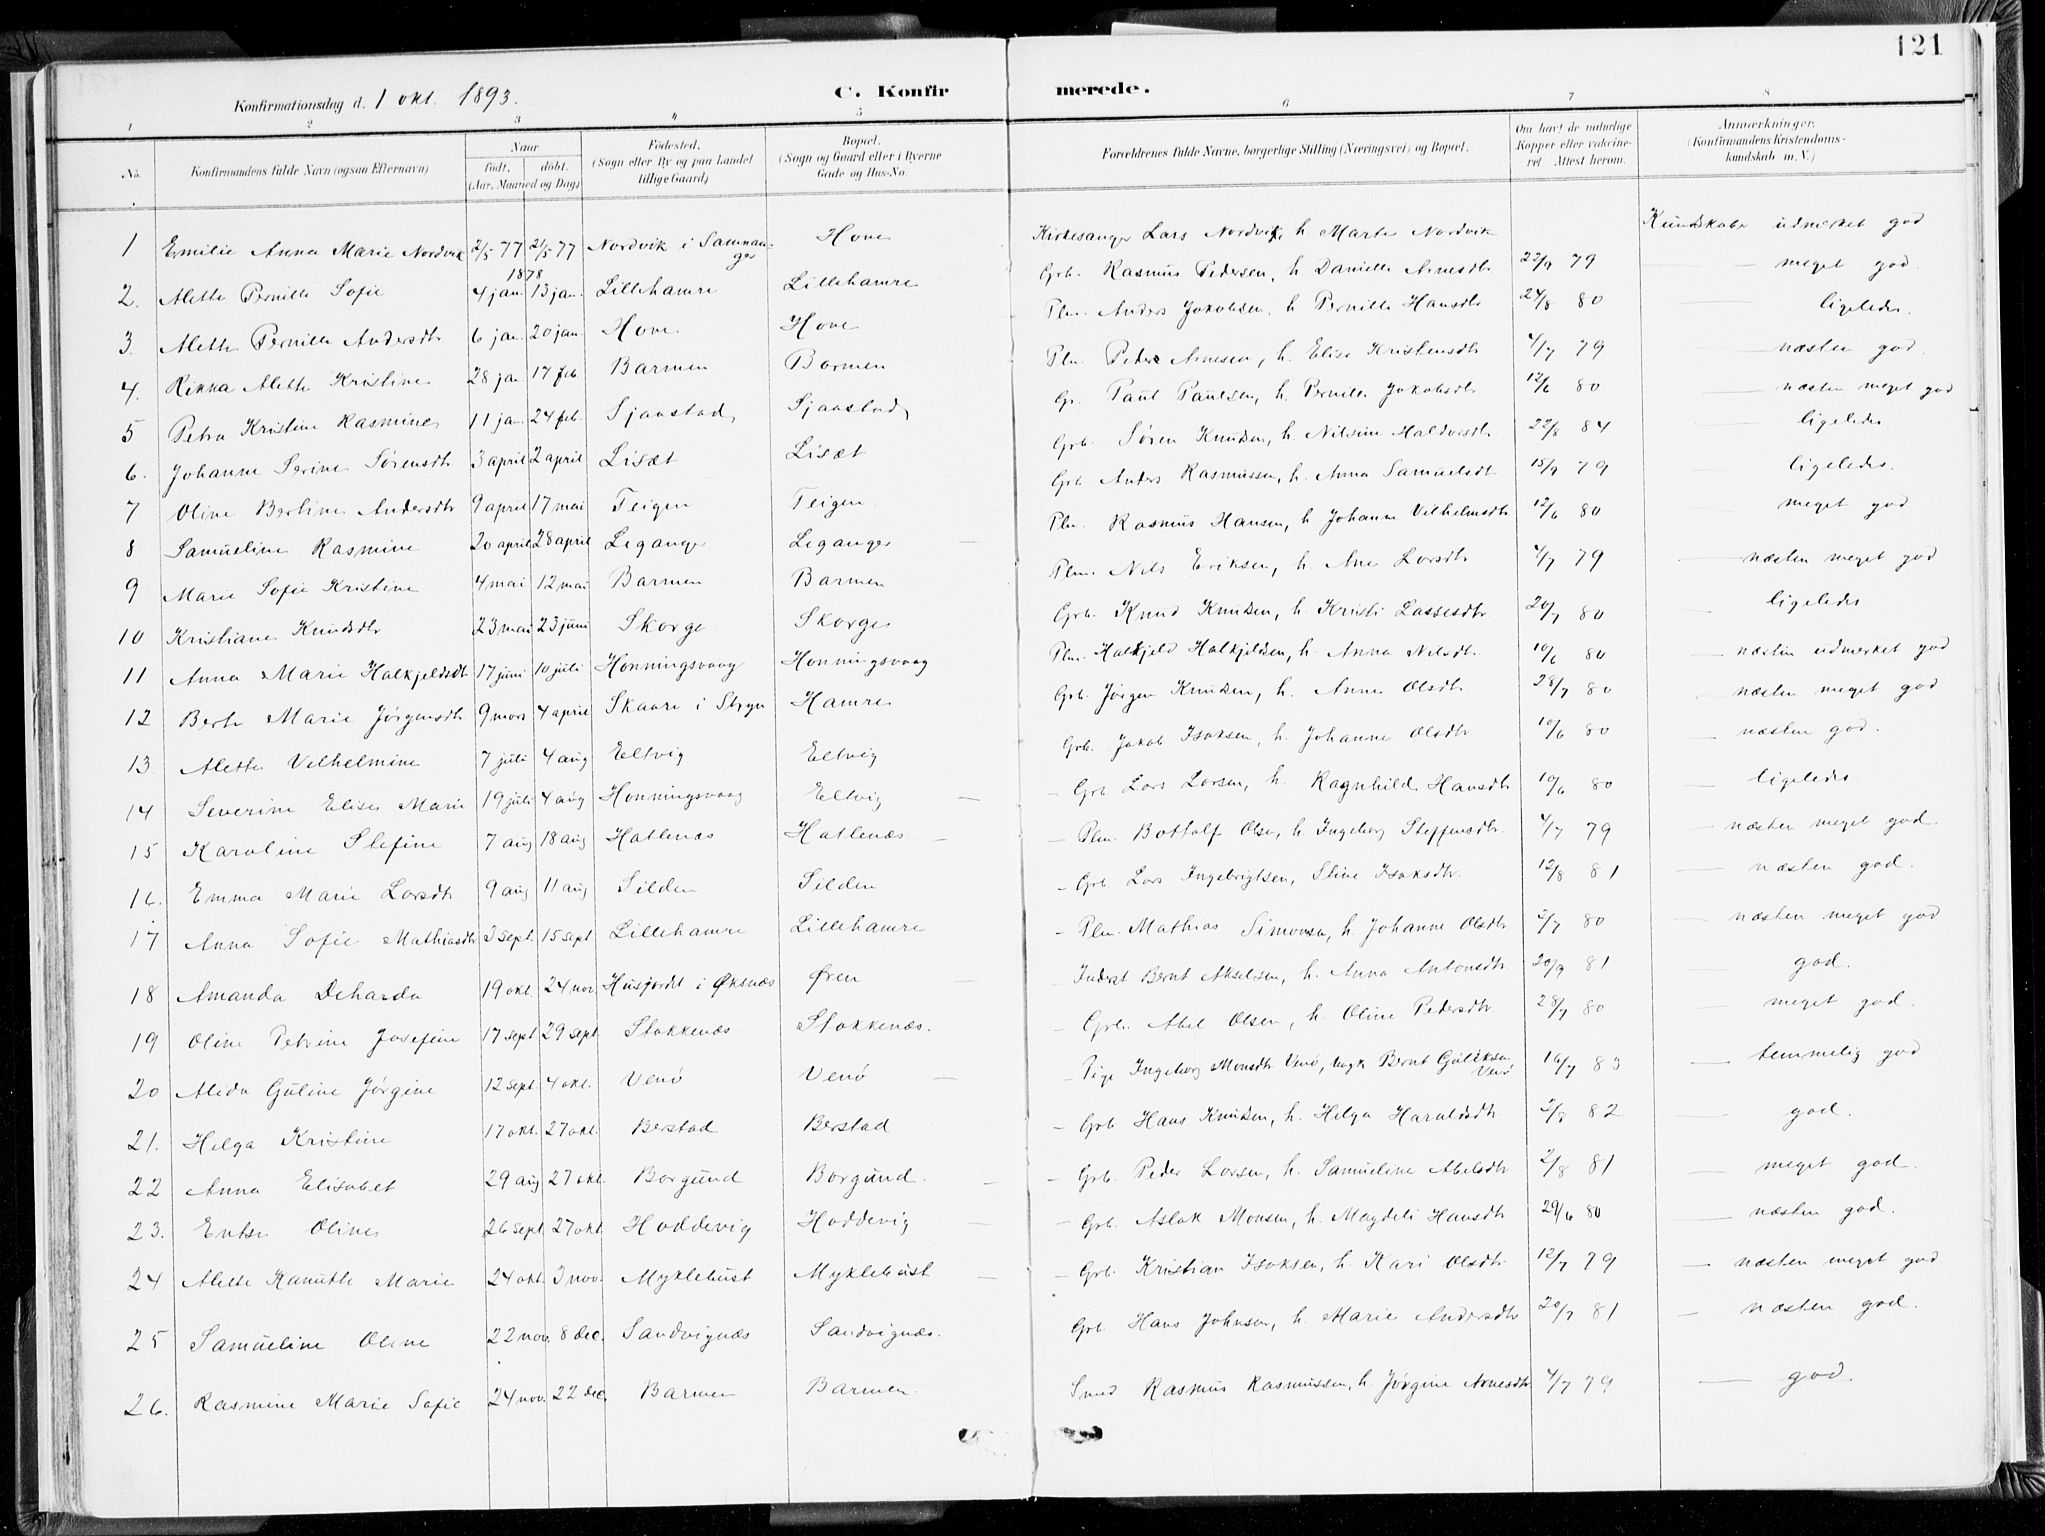 121
Konfirmationsdag d. 1 okt. 1893. C. Konfirmerede.
1 2 3 4 5 6 7 8
No. Konfirmandens fulde Navn (ogsaa Efternavn) Naar født, døbt. (Aar, Maaned og Dag) Fødested. (Sogn eller By og paa Landet tillige Gaard) Bopæl. (Sogn og Gaard eller i Byerne Gade og Hus-No. Forældrenes fulde Navne, borgerlige Stilling (Næringsvei) og Bopæl. Om havt de naturlige Kopper eller vakcineret Attest herom. Anmærkninger. (Konfirmandens Kristendomskundskab m. V.)
1 Emilie Anna Marie Nordvik 2/5 77 21/5 77 Nordvik i Samnanger Hove Kirkesanger Lars Nordvik h. Marte Nordvik Kundskaber udmerket god
1878
2. Alette Pernille Sofie 4 jan. 13 jan. Lillehamre Lillehamre Grb. Rasmus Pedersen, h. Danielle Arnesdtr 22/9 79 — meget god.
3. Alette Pernille Andersdtr 6 jan. 20 jan. Hove Hove Plm. Anders Jakobsen, h. Pernille Hansdtr 24/8 80 ligeledes.
4. Rikka Alette Kristine 28 jan. 17 feb. Barmen Barmen Plm. Peder Arnesen, h. Elise Kristensdtr 4/7 79 — næsten god.
5 Petra Kristine Rasmine 11 jan. 24 feb. Sjaastad Sjaastad Gr. Paul Paulsen, h. Pernille Jakobsdtr 12/6 80 — næsten meget god
6. Johanne Serine Sørensdtr 3 april 2 april Lisæt Lisæt Grb. Søren Knudsen, h. Nilsine Haldorsdtr 22/8 84 — ligeledes.
7 Oline Bertine Andersdtr 9 april 17 mai Teigen Teigen Grb. Anders Rasmussen, h. Anna Samuelsdtr 15/9 79 — ligeledes.
8 Samueline Rasmine 20 april 28 april Leganger Leganger — Plm. Rasmus Hansen, h. Johanne Vilhelmsdtr 12/6 80 — meget god
9 Marie Sofie Kristine 4 mai 12 mai Barmen Barmen Plm. Nils Eriksen, h. Ane Larsdtr 4/7 79 — næsten meget god
10 Kristiane Knudsdtr 23 mai 23 juni Skorge Skorge Grb. Knud Knudsen, h. Kristi Lassesdtr. 20/7 80 — ligeledes
11 Anna Marie Halkjeldsdtr 17 juni 10 juli Honningsvaag Honningsvaag Plm. Halkjeld Halkjeldsen, h. Anna Nilsdtr. 10/6 80 — næsten udmerket god
12 Berte Marie Jørgensdtr 9 mars 4 april Skaare i Stryn Hamre Grb. Jørgen Knudsen, h. Anne Olsdtr. 28/7 80 — næsten meget god
13. Alette Vilhelmine 7 juli 4 aug Eltvig Eltvig Grb. Jakob Isaksen, h. Johanne Olsdtr 10/6 80 — næsten god.
14 Severine Elise Marie 19 juli 4 aug Honningsvaag Eltvig — — Grb Lars Larsen, h. Ragnhilde Hansdtr 10/6 80 — ligeledes
15 Karoline Stefine 7 aug 18 aug Hatlenæs Hatlenæs — — Plm. Bottolf Olsen, h. Ingeborg Steffensdtr. 4/7 79 — næsten meget god.
16. Emma Marie Larsdtr 9 aug 11 aug Silden Silden — Grb. Lars Ingebrigtsen, Stine Isaksdtr. 12/8 81 — næsten god.
17 Anna Sofie Mathiasdtr 3 sept. 15 sept Lillehamre Lillehamre — Plm. Mathias Simonsen, h. Johanne Olsdtr 2/7 80 — næsten meget god
18 Amanda Deharda 19 okt. 24 nov. Husjordet i Øksnæs Øren — — Inderst Bernt Akselsen, h. Anna Antonsdtr 20/9 81 — god.
19 Oline Petrine Josefine 17 sept 29 sept. Stokkenæs Stokkenæs. — Grb. Abel Olsen, h. Oline Pedersdtr 28/7 80 — meget god.
20 Alida Guline Jørgine 12 sept. 4 okt. Venø Venø — — Pige Ingeborg Monsdtr Venø, Ungk Bernt Guliksen Venø 16/7 83 — temmelig god
21. Helga Kristine 17 okt. 27 okt. Berstad Berstad — Grb Hans Knudsen, h. Helga Haraldsdtr. 2/8 82 — god.
22 Anna Elisabet 29 aug 27 okt. Borgund Borgund. — — Grb. Peder Larsen, h. Samueline Abelsdtr 2/8 81 — meget god.
23. Entse Oline 26 sept 27 okt. Hoddevig Hoddevig — — Grb. Aslak Monsen, h. Magdeli Hansdtr 29/6 80 — næsten god.
24 Alette Kanutte Marie 24 okt. 3 nov. Myklebust Myklebust — — Grb. Kristian Isaksen, h. Kari Olsdtr. 12/7 79 — næsten meget god
25 Samueline Oline 22 nov. 8 dec. Sandvignæs Sandvignæs. Grb. Hans Johnsen, h. Marie Andersdtr 20/7 81 — næsten god.
26. Rasmine Marie Sofie 24 nov. 22 dec. Barmen Barmen. Smed Rasmus Rasmussen, h. Jørgine Arnesdtr 4/7 79 — god.